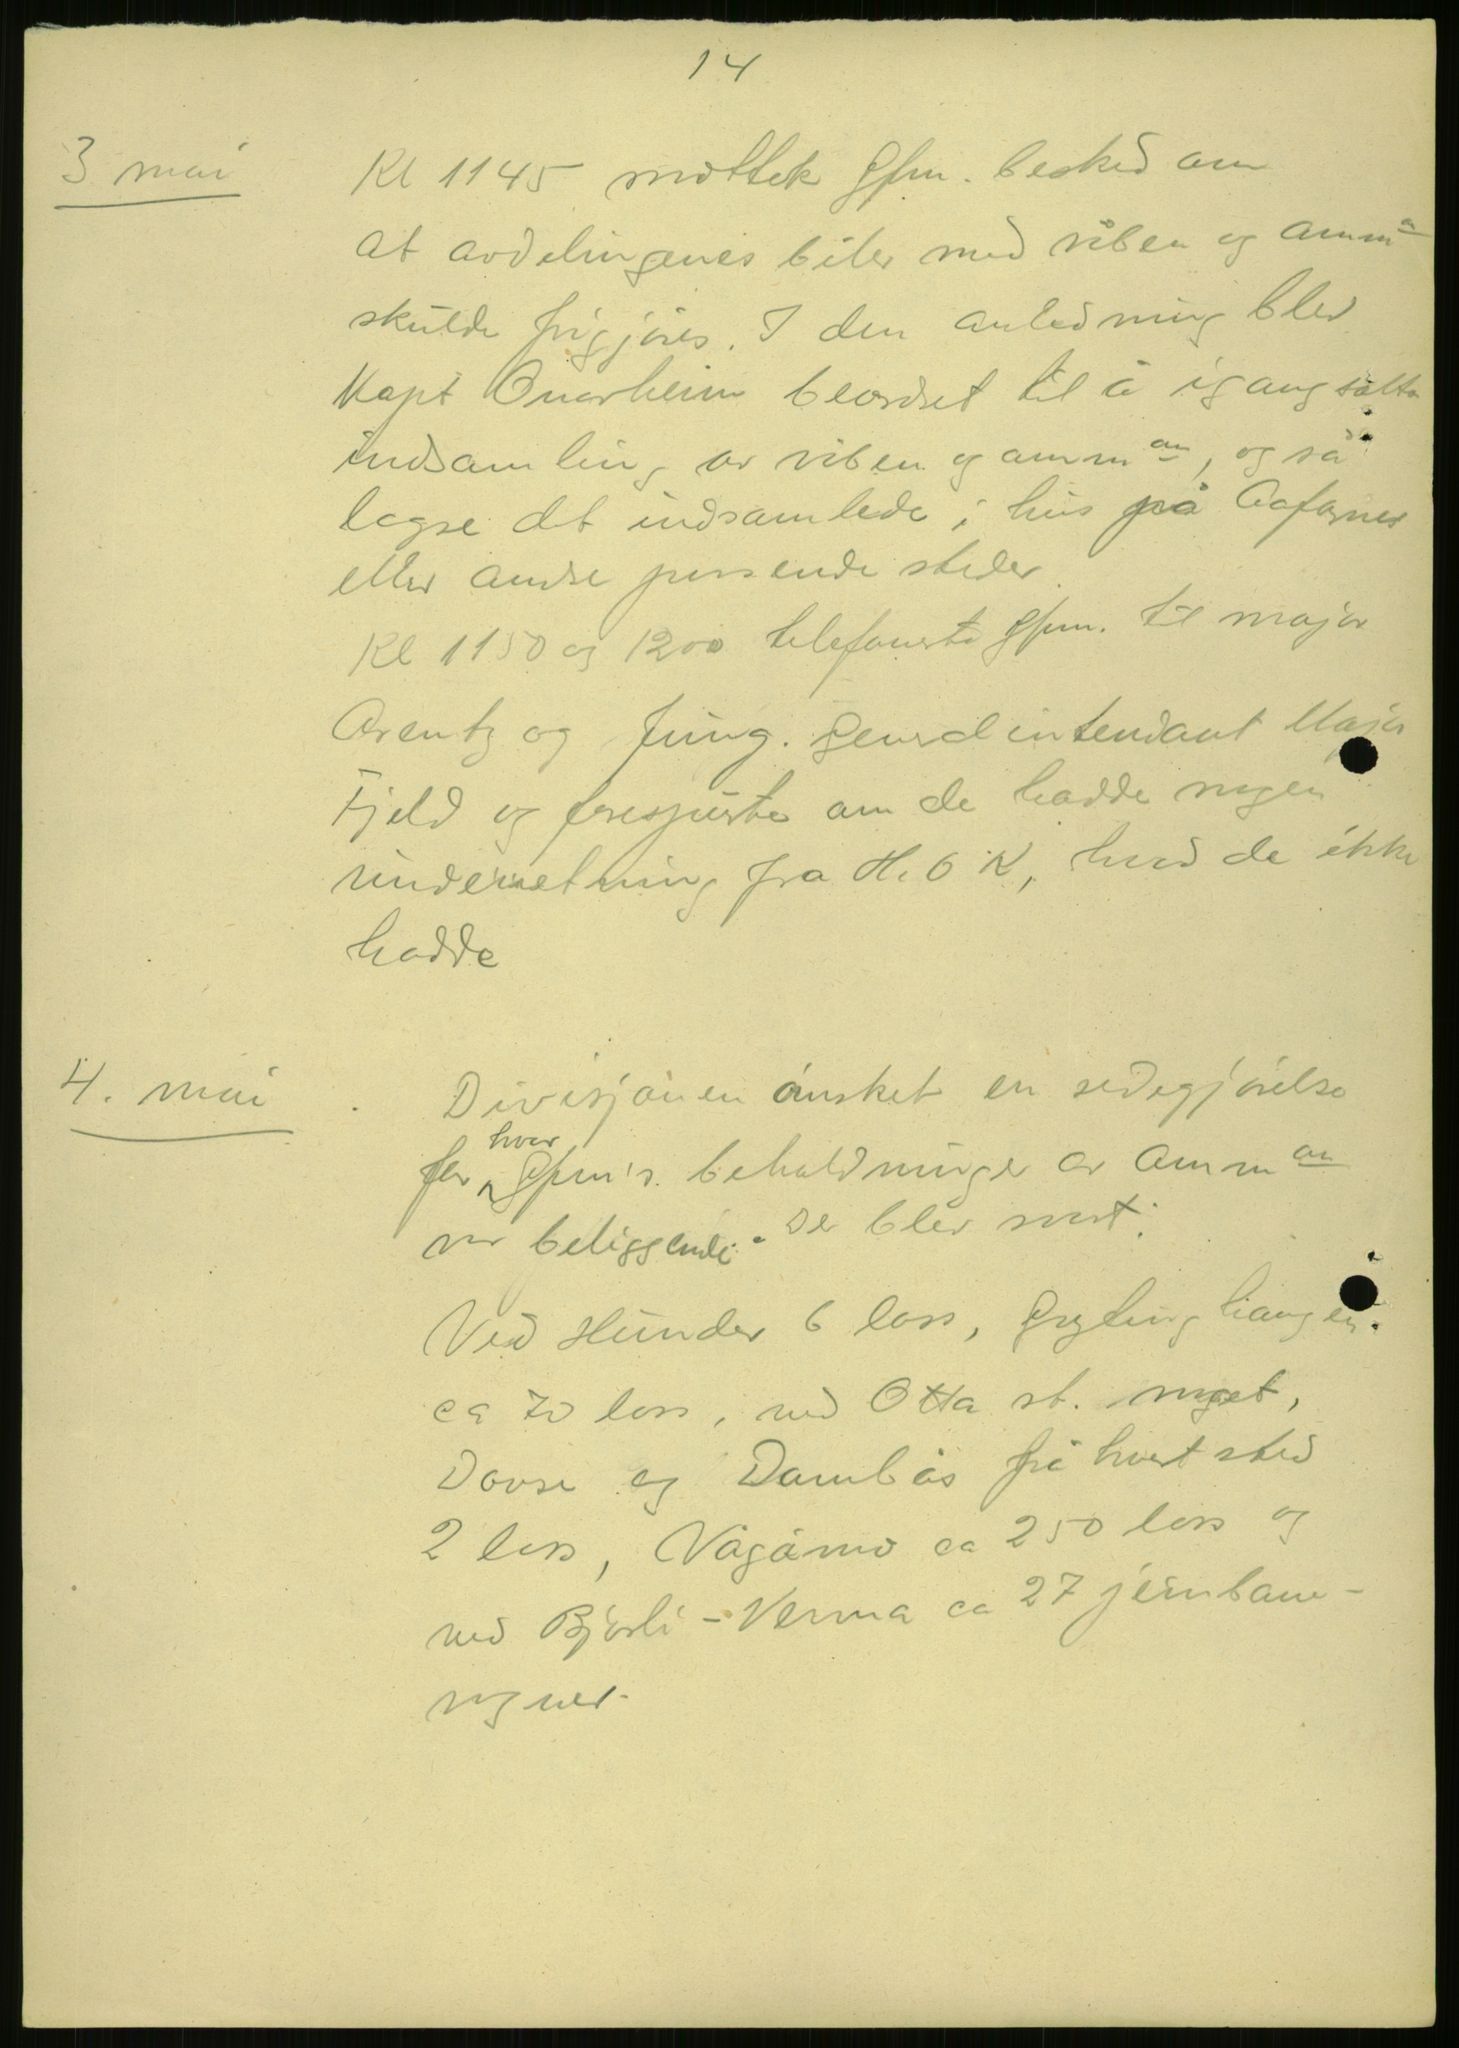 14
3 mai
Kl 1145 mottok Gfm. besked om
at avdelingenes biler med våben og ammn
skulde frigjøres. I den anledning blev
Kapt Onarheim beordret til å igangsætte
indsamling av våben og amman, og så
lagre det indsamlede i hus på Aafarnes
eller andre passende steder
Kl 1150 og 1200 telefonerte Gfm. til major
Arentz og fung. Generalintendant Major
Fjeld og forespurte om de hadde nogen
underretning fra H.O.K, hvad de ikke
hadde
4. mai
Divisjonen ønsket en redegjørelse
for hvor Gfm's. beholdninger av amman
var beliggende. Der blev svart:
Ved Hunder 6 lass, Gryting haugen
ca 70 lass, ved Otta st. noget,
Dovre og Dombås på hvert sted
2 lass, Vågåmo ca 250 lass og
ved Bjorli - Verma ca 27 jernbane-
vogner.